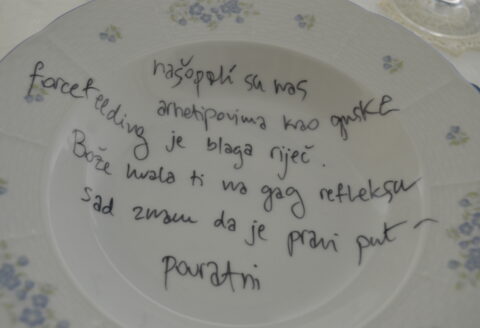 našopali su nas
arhetipovima kao guske
forcefeeding je blaga riječ.
Bože hvala ti na gag refleksu
sad znam da je pravi put –
povratni